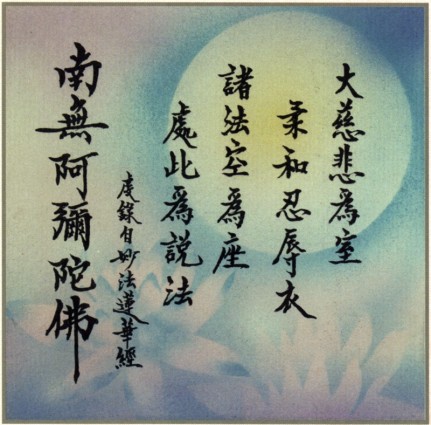 大慈悲為室
柔和忍辱衣
諸法空為座
處此為說法
虔錄自妙法蓮華經
南無阿彌陀佛